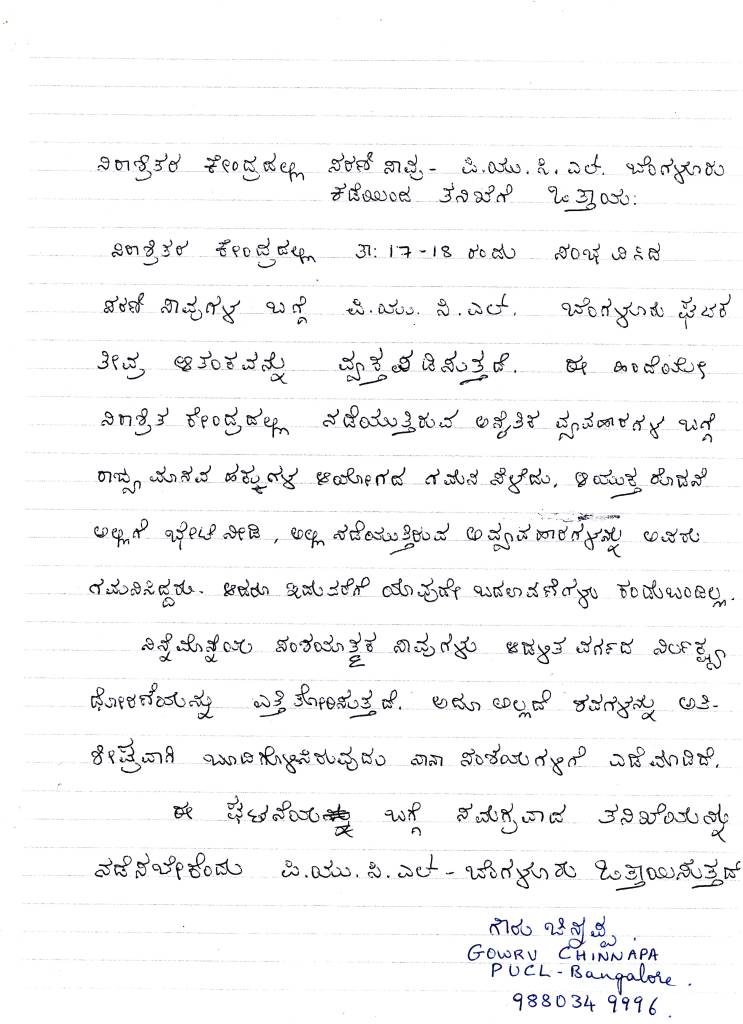 ನಿರಾಶ್ರಿತರ ಕೇಂದ್ರದಲ್ಲಿ ಸರಣಿ ಸಾವು - ಪಿ.ಯು.ಸಿ.ಎಲ್. ಬೆಂಗಳೂರು
ಕಡೆಯಿಂದ ತನಿಖೆಗೆ ಒತ್ತಾಯ:
ನಿರಾಶ್ರಿತರ ಕೇಂದ್ರದಲ್ಲಿ ತಾ: 17-18 ರಂದು ಸಂಭವಿಸಿದ
ಸರಣಿ ಸಾವುಗಳ ಬಗ್ಗೆ ಪಿ.ಯು.ಸಿ.ಎಲ್. ಬೆಂಗಳೂರು ಘಟಕ
ತೀವ್ರ ಆತಂಕವನ್ನು ವ್ಯಕ್ತಪಡಿಸುತ್ತದೆ. ಈ ಹಿಂದೆಯೇ
ನಿರಾಶ್ರಿತ ಕೇಂದ್ರದಲ್ಲಿ ನಡೆಯುತ್ತಿರುವ ಅನೈತಿಕ ವ್ಯಾವಹಾರಗಳ ಬಗ್ಗೆ
ರಾಜ್ಯ ಮಾನವ ಹಕ್ಕುಗಳ ಆಯೋಗದ ಗಮನ ಸೆಳೆದು, ಆಯುಕ್ತರೊಡನೆ
ಅಲ್ಲಿಗೆ ಭೇಟಿ ನೀಡಿ, ಅಲ್ಲಿ ನಡೆಯುತ್ತಿರುವ ಅವ್ಯಾವಹಾರಗಳನ್ನು ಅವರು
ಗಮನಿಸಿದ್ದರು. ಆದರೂ ಇದುವರೆಗೆ ಯಾವುದೇ ಬದಲಾವಣೆಗಳು ಕಂಡುಬಂದಿಲ್ಲ.
ನಿನ್ನೆಮೊನ್ನೆಯ ಸಂಶಯಾತ್ಮಕ ಸಾವುಗಳು ಆಡಳಿತ ವರ್ಗದ ನಿರ್ಲಕ್ಷ್ಯ
ಧೋರಣೆಯನ್ನು ಎತ್ತಿ ತೋರಿಸುತ್ತದೆ. ಅದೂ ಅಲ್ಲದೆ ಶವಗಳನ್ನು ಅತಿ-
ಶೀಘ್ರವಾಗಿ ಬೂದಿಗೊಳಿಸಿರುವುದು ನಾನಾ ಸಂಶಯಗಳಿಗೆ ಎಡೆಮಾಡಿದೆ.
ಈ ಘಟನೆಯ ಬಗ್ಗೆ ಸಮಗ್ರವಾದ ತನಿಖೆಯನ್ನು
ನಡೆಸಬೇಕೆಂದು ಪಿ.ಯು.ಸಿ.ಎಲ್ - ಬೆಂಗಳೂರು ಒತ್ತಾಯಿಸುತ್ತದೆ
ಗೌರು ಚಿನ್ನಪ್ಪ.
GOWRU CHINNAPA
PUCL-Bangalore.
988034 9996.